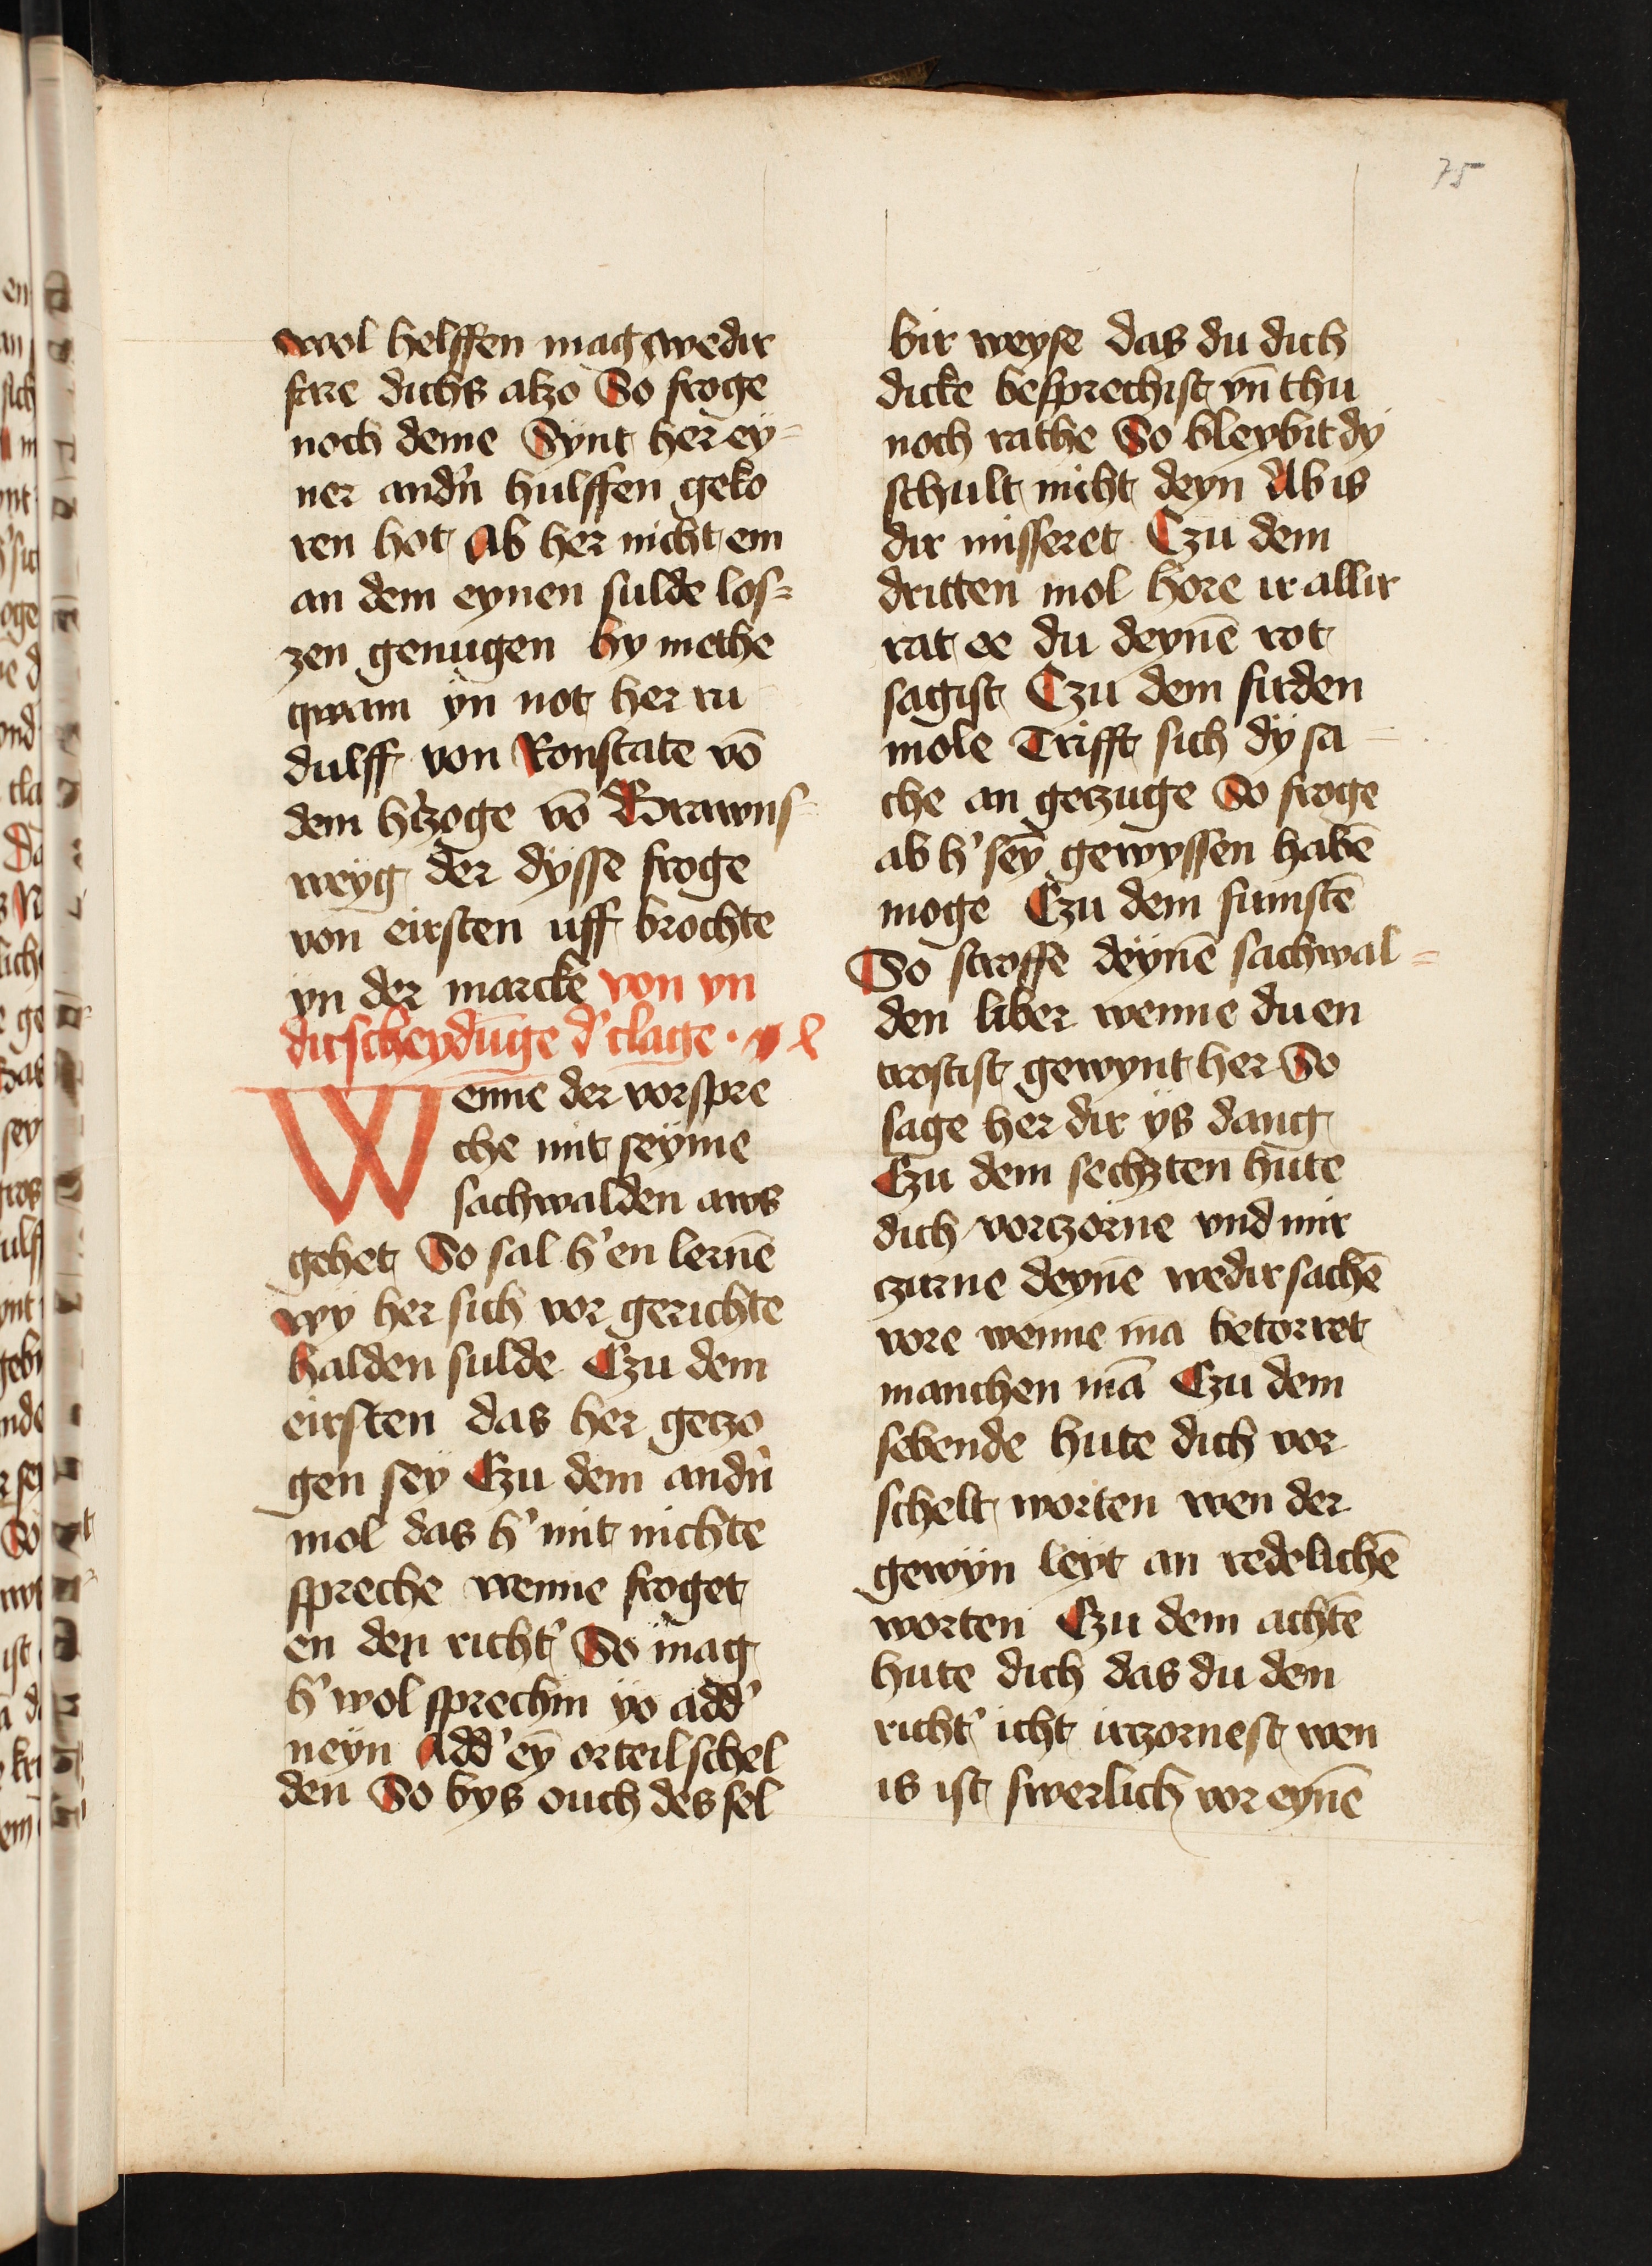 75
wol helffen mag wedir
fare dichs alzo So froge
noch deme Synt her ey=
ner andn̄ hulffen geko
ren hot Ab her nicht em
an dem eynen sulde los=
zen genugen hy methe
qwam yn not her ru
dulff von Ronstate vō
dem h'tzoge vō Brawns
weyg der dysse froge
von eirsten uff brochte
yn der marcke von vn
dirscheydūge d' clage · x
Wenne der vorspre
che mit seyme
sachwalden aws
gehet So sal h' en lernē
wy her sich vor gerichte
halden sulde Czu dem
eirsten das her getzo
gen sey Czu dem andn̄
mol das h' mit nichte
spreche wenne froget
en den richt' So mag
h' wol sprechin yo add'
neyn Add' eȳ orteil schel
den So bys ouch des sel
bir weyse das du dich
dicke besprechist vn̄ thu
noch rathe So bleybit dy
schult nicht deyn Ab is
dir misseret Czu dem
dritten mol hore ir allir
rat ee du deynē rot
sagist Czu dem firden
mole Trifft sich dy sa
che an getzuge So froge
ab h' seȳ gewyssen habē
moge Czu dem fumstē
So stroffe deynē sachwal=
den liber wenne du en
trostist gewynt her So
sage her dir ys dang
Czu dem sechzten hute
dich vorczorne vnd mir
czurne deynē wedirsachē
vore wenne ma betorret
manchen mā Czu dem
sebende hute dich vor
schelt worten wen der
gewyn leyt an redelichē
worten Czu dem achtē
hute dich das du den
richt' icht irczornest wen
is ist swerlich vor eynē